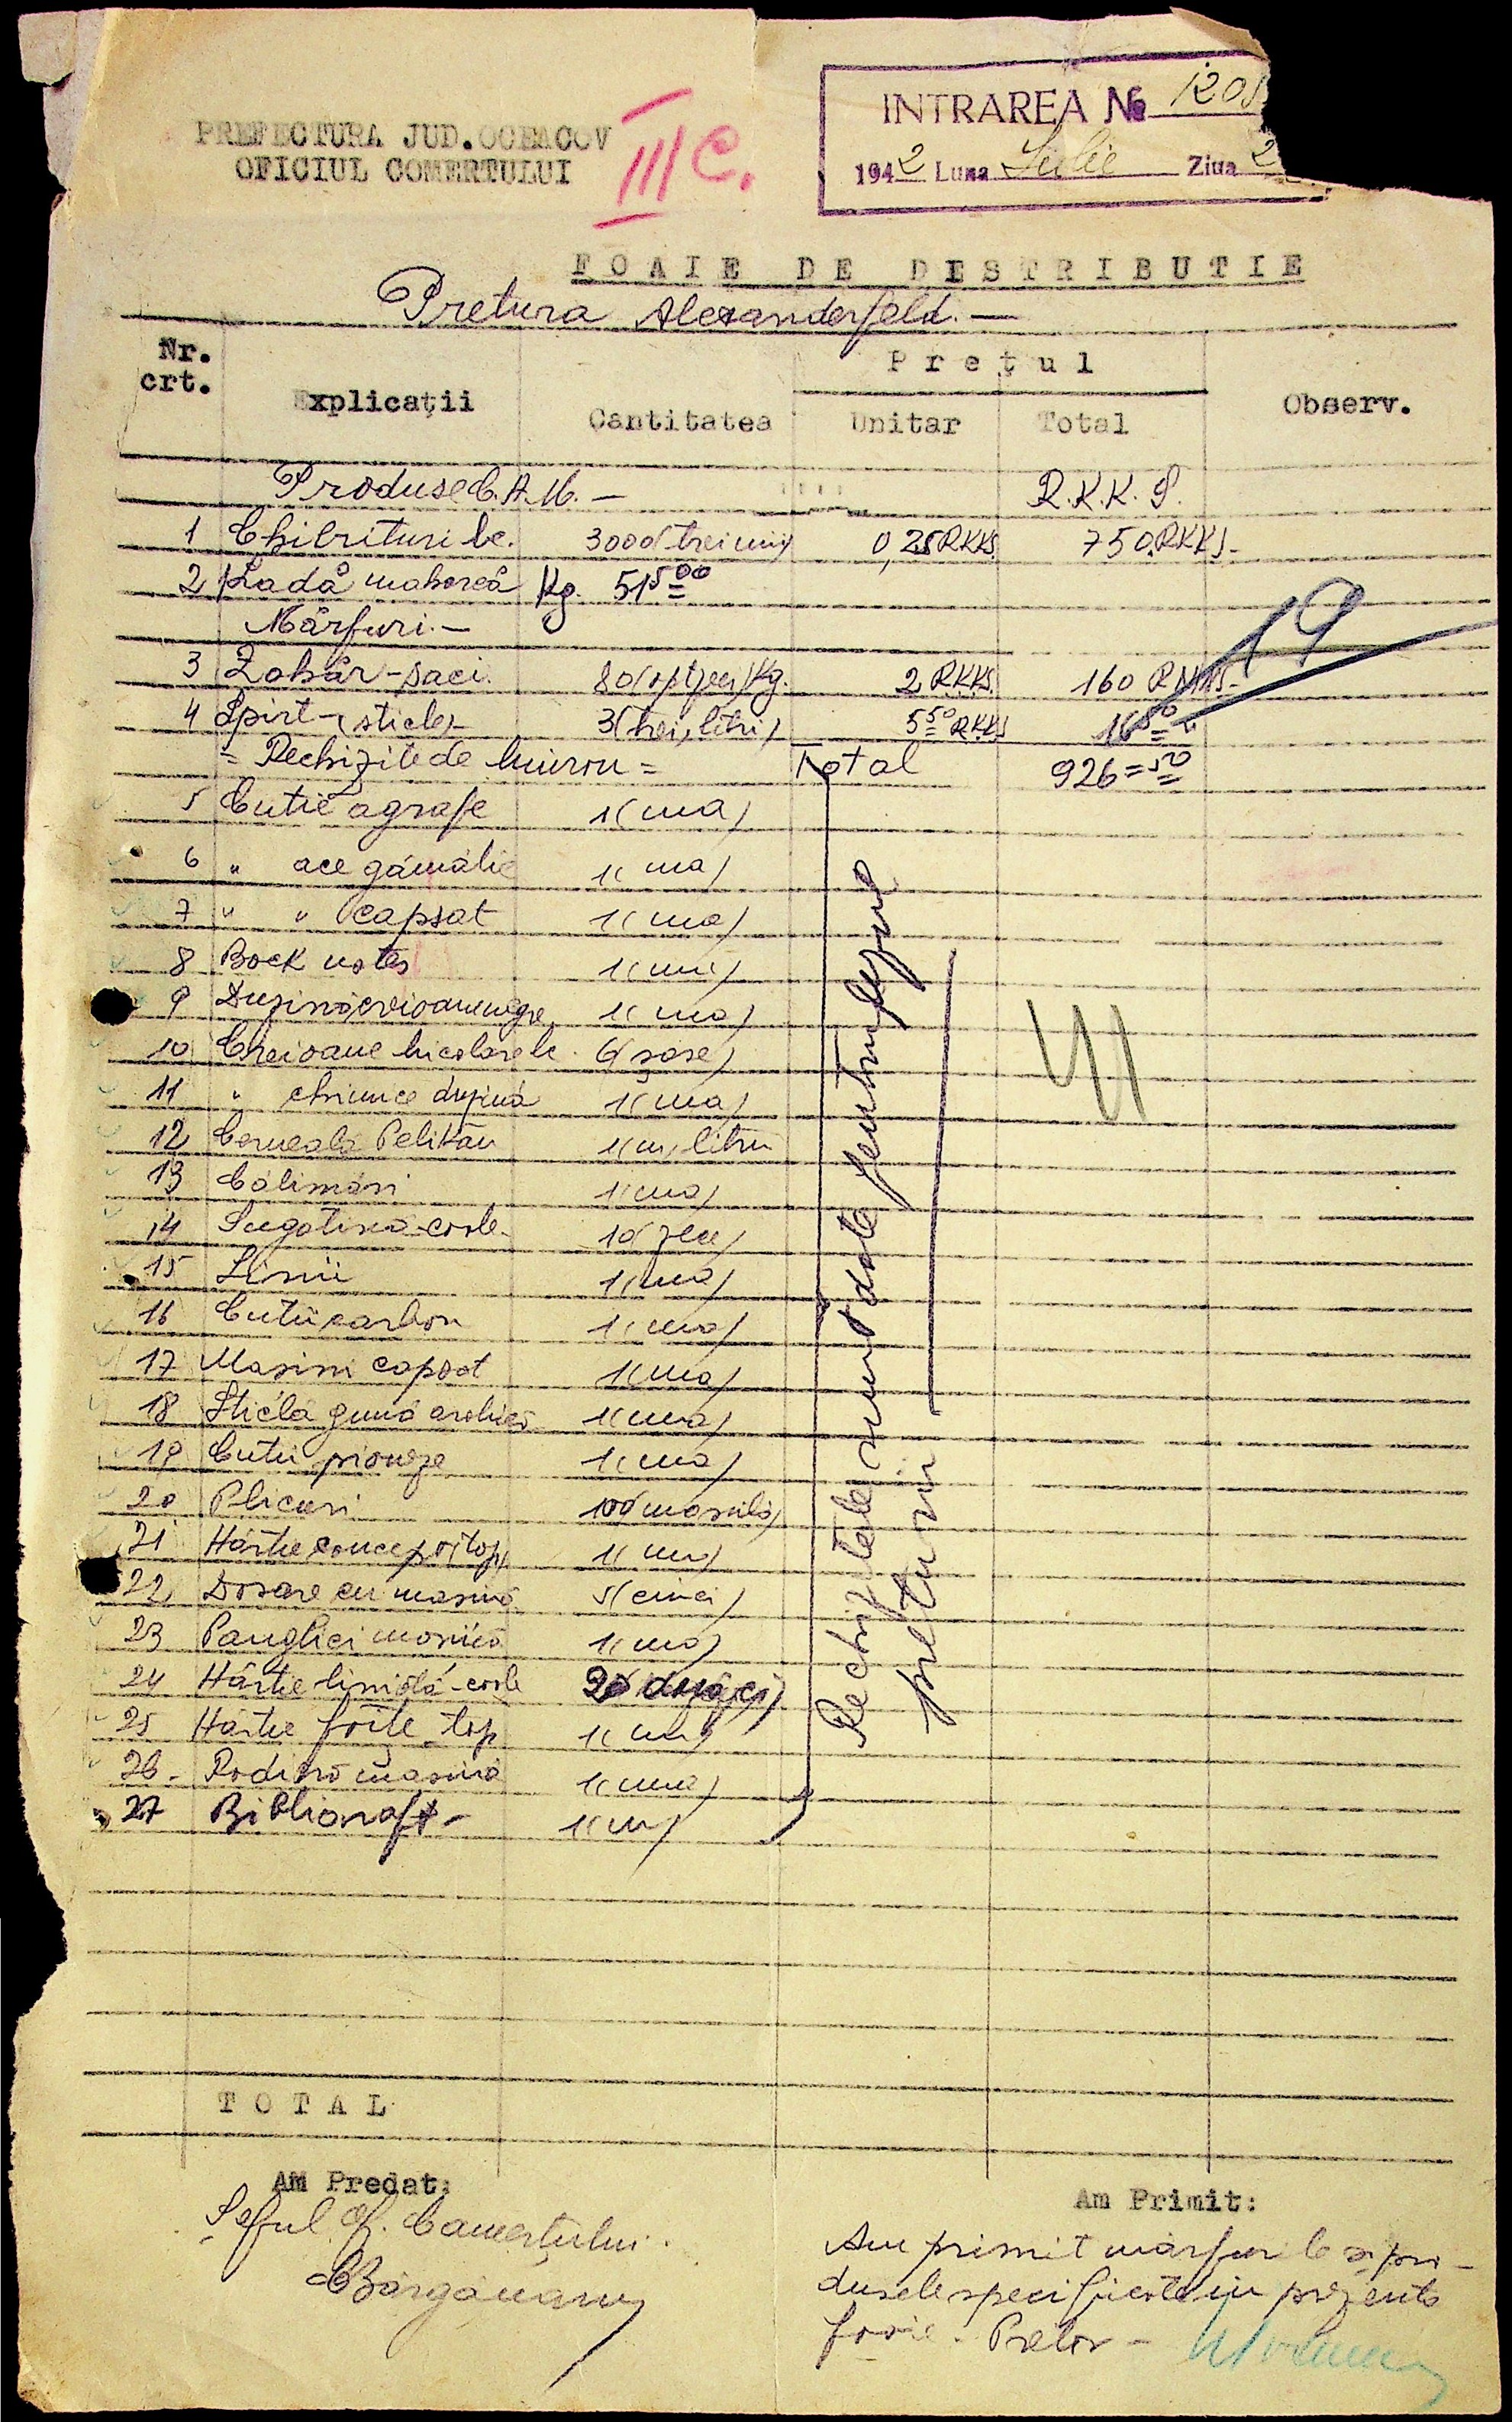 INTRAREA № 1205
PREFECTURA JUD.OCEACOV
OFICIUL COMERTULUI
III C.
1942 Luna Iulie Ziua 2
FOAIE DE DISTRIBUTIE
Pretura Alexanderfeld. —
Nr. crt. Explicaţii Cantitatea Preţul Unitar Total Observ.
Produse C.A.M. — R.K.K.S.
1 Chibrituri bc. 3000 (trei mii) 0,25 RKKS. 750 RKKS -
2 Ladă mahorcă Kg. 51500
Mărfuri. —
3 Zahăr - saci. 80 (optzeci) Kg. 2 RKKS. 160 RKKS. -
19
4 Spirt - (sticle) 3 (trei, litri) 5 50 RKKS 16 50
= Rechizite de birou = Total 926 = 50
5 Cutie agrafe 1 (una)
6 " ace gămălie 1 (una)
7 " " capsat 1 (una)
8 Bock notes 1 (unu)
9 Duzină creioane negre 1 (una)
10 Creioane bicolore bc. 6 (șase)
11 " chimice duzină 1 (una)
12 Cerneală Pelikan 1 (un, litru
13 Călimări 1 (una)
14 Sugativă - coale - 10 (zece)
15 Linii 1 (una)
16 Cutii carbon 1 (una)
17 Mașini capsat 1 (una)
18 Sticlă gumă arabică 1 (una)
19 Cutii pioneze 1 (una)
20 Plicuri 100 (una sută)
21 Hârtie concept (top) 1 (unu)
22 Dosare cu mașină 5 (cinci)
23 Panglici mașină 1 (una)
24 Hârtie liniată - coale 20 (douăzeci)
25 Hârtie foiţe top 1 (unu)
26 - Radieră mașină 1 (una)
27 Biblioraft - 1 (un)
Rechizitele sunt date pentru uzul
preturii
TOTAL
Am Predat:
Șeful Of. Comerţului.
Am Primit:
Am primit mărfurile și pro-
dusele specificate în prezenta
foaie. Pretor -